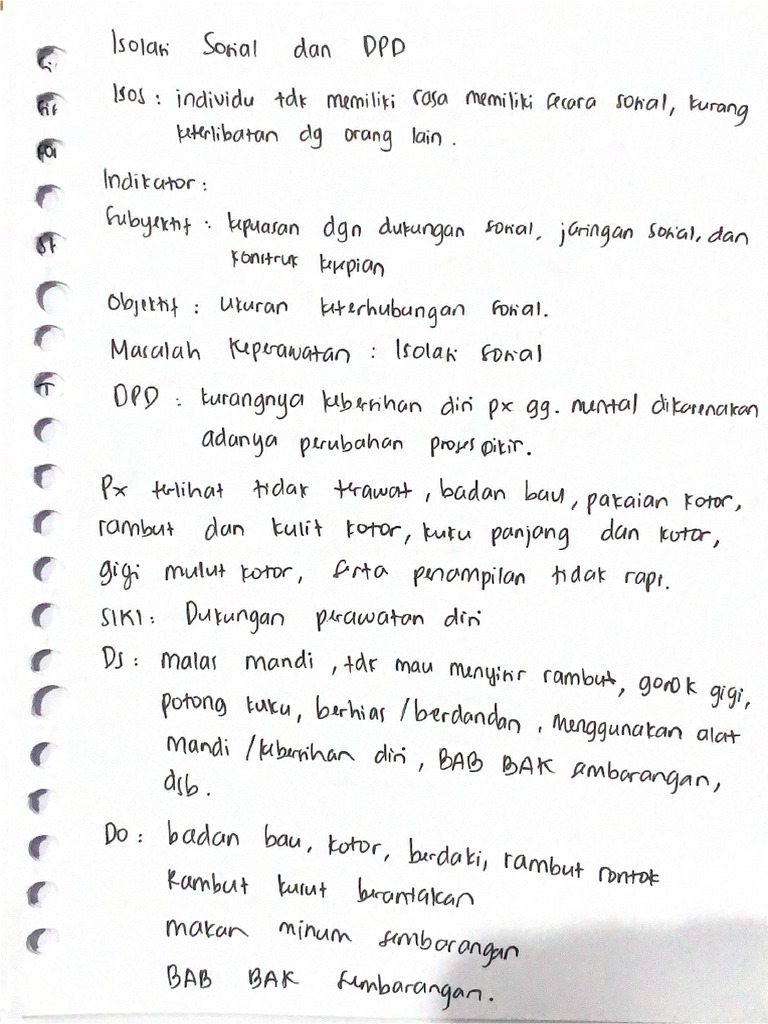 Isolasi Sosial dan DPD
Isos : individu tdk memiliki rasa memiliki secara sosial, kurang
keterlibatan dg orang lain.
Indikator :
Subyektif : kepuasan dgn dukungan sosial, jaringan sosial, dan
konstruk kesepian
Objektif : Ukuran keterhubungan sosial.
Masalah Keperawatan : Isolasi sosial
DPD : kurangnya kebersihan diri px gg. mental dikarenakan
adanya perubahan proses pikir.
Px terlihat tidak terawat, badan bau, pakaian kotor,
rambut dan kulit kotor, kuku panjang dan kotor,
gigi mulut kotor, serta penampilan tidak rapi.
SIKI : Dukungan perawatan diri
Ds : malas mandi, tdk mau menyisir rambut, gosok gigi,
potong kuku, berhias / berdandan, menggunakan alat
mandi / kebersihan diri, BAB BAK sembarangan,
dsb.
Do : badan bau, kotor, berdaki, rambut rontok
Rambut kusut berantakan
makan minum sembarangan
BAB BAK sembarangan.